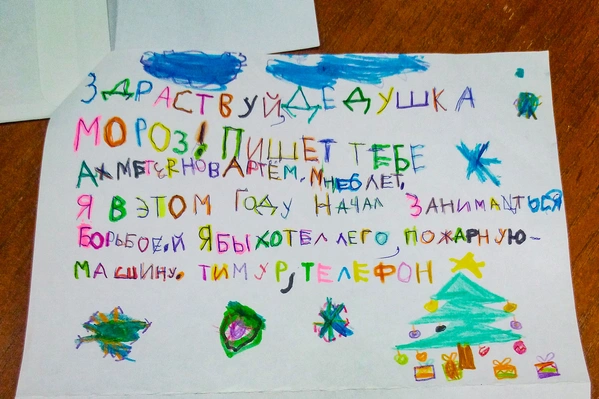 ЗДРАСТВУЙ, ДЕДУШКА
МОРОЗ! ПИШЕТ ТЕБЕ
АХМЕТЖНОВ АРТЁМ, МНЕ 6 ЛЕТ,
Я В ЭТОМ ГОДУ НАЧАЛ ЗАНИМАЦТЬСЯ
БОРЬБОЕ,Й Я БЫ ХОТЕЛ ЛЕГО, ПОЖАРНУЮ-
МАШИНУ. ТИМУР, ТЕЛЕФОН